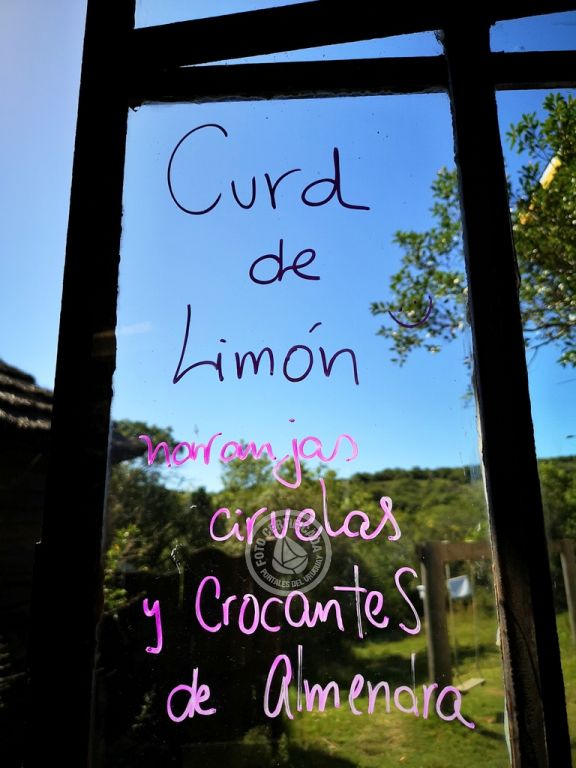 Curd
de
Limón
naranjas
ciruelas
y Crocantes
de Almendra
FOTO CERTIFICADA
PORTALES DEL URUGUAY